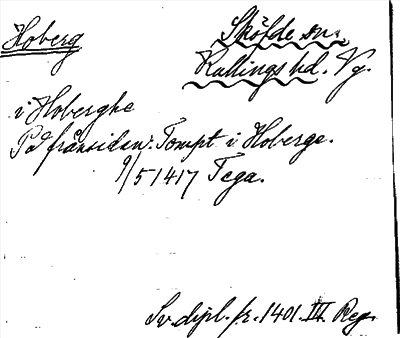 Hoberg
Sköfde sn.
Kullings hd. Vg.
i Hoberghe
På frånsidan: Tompt i Hoberge.
9/5 1417 Tega.
Sv. dipl. fr. 1401. III. Reg.